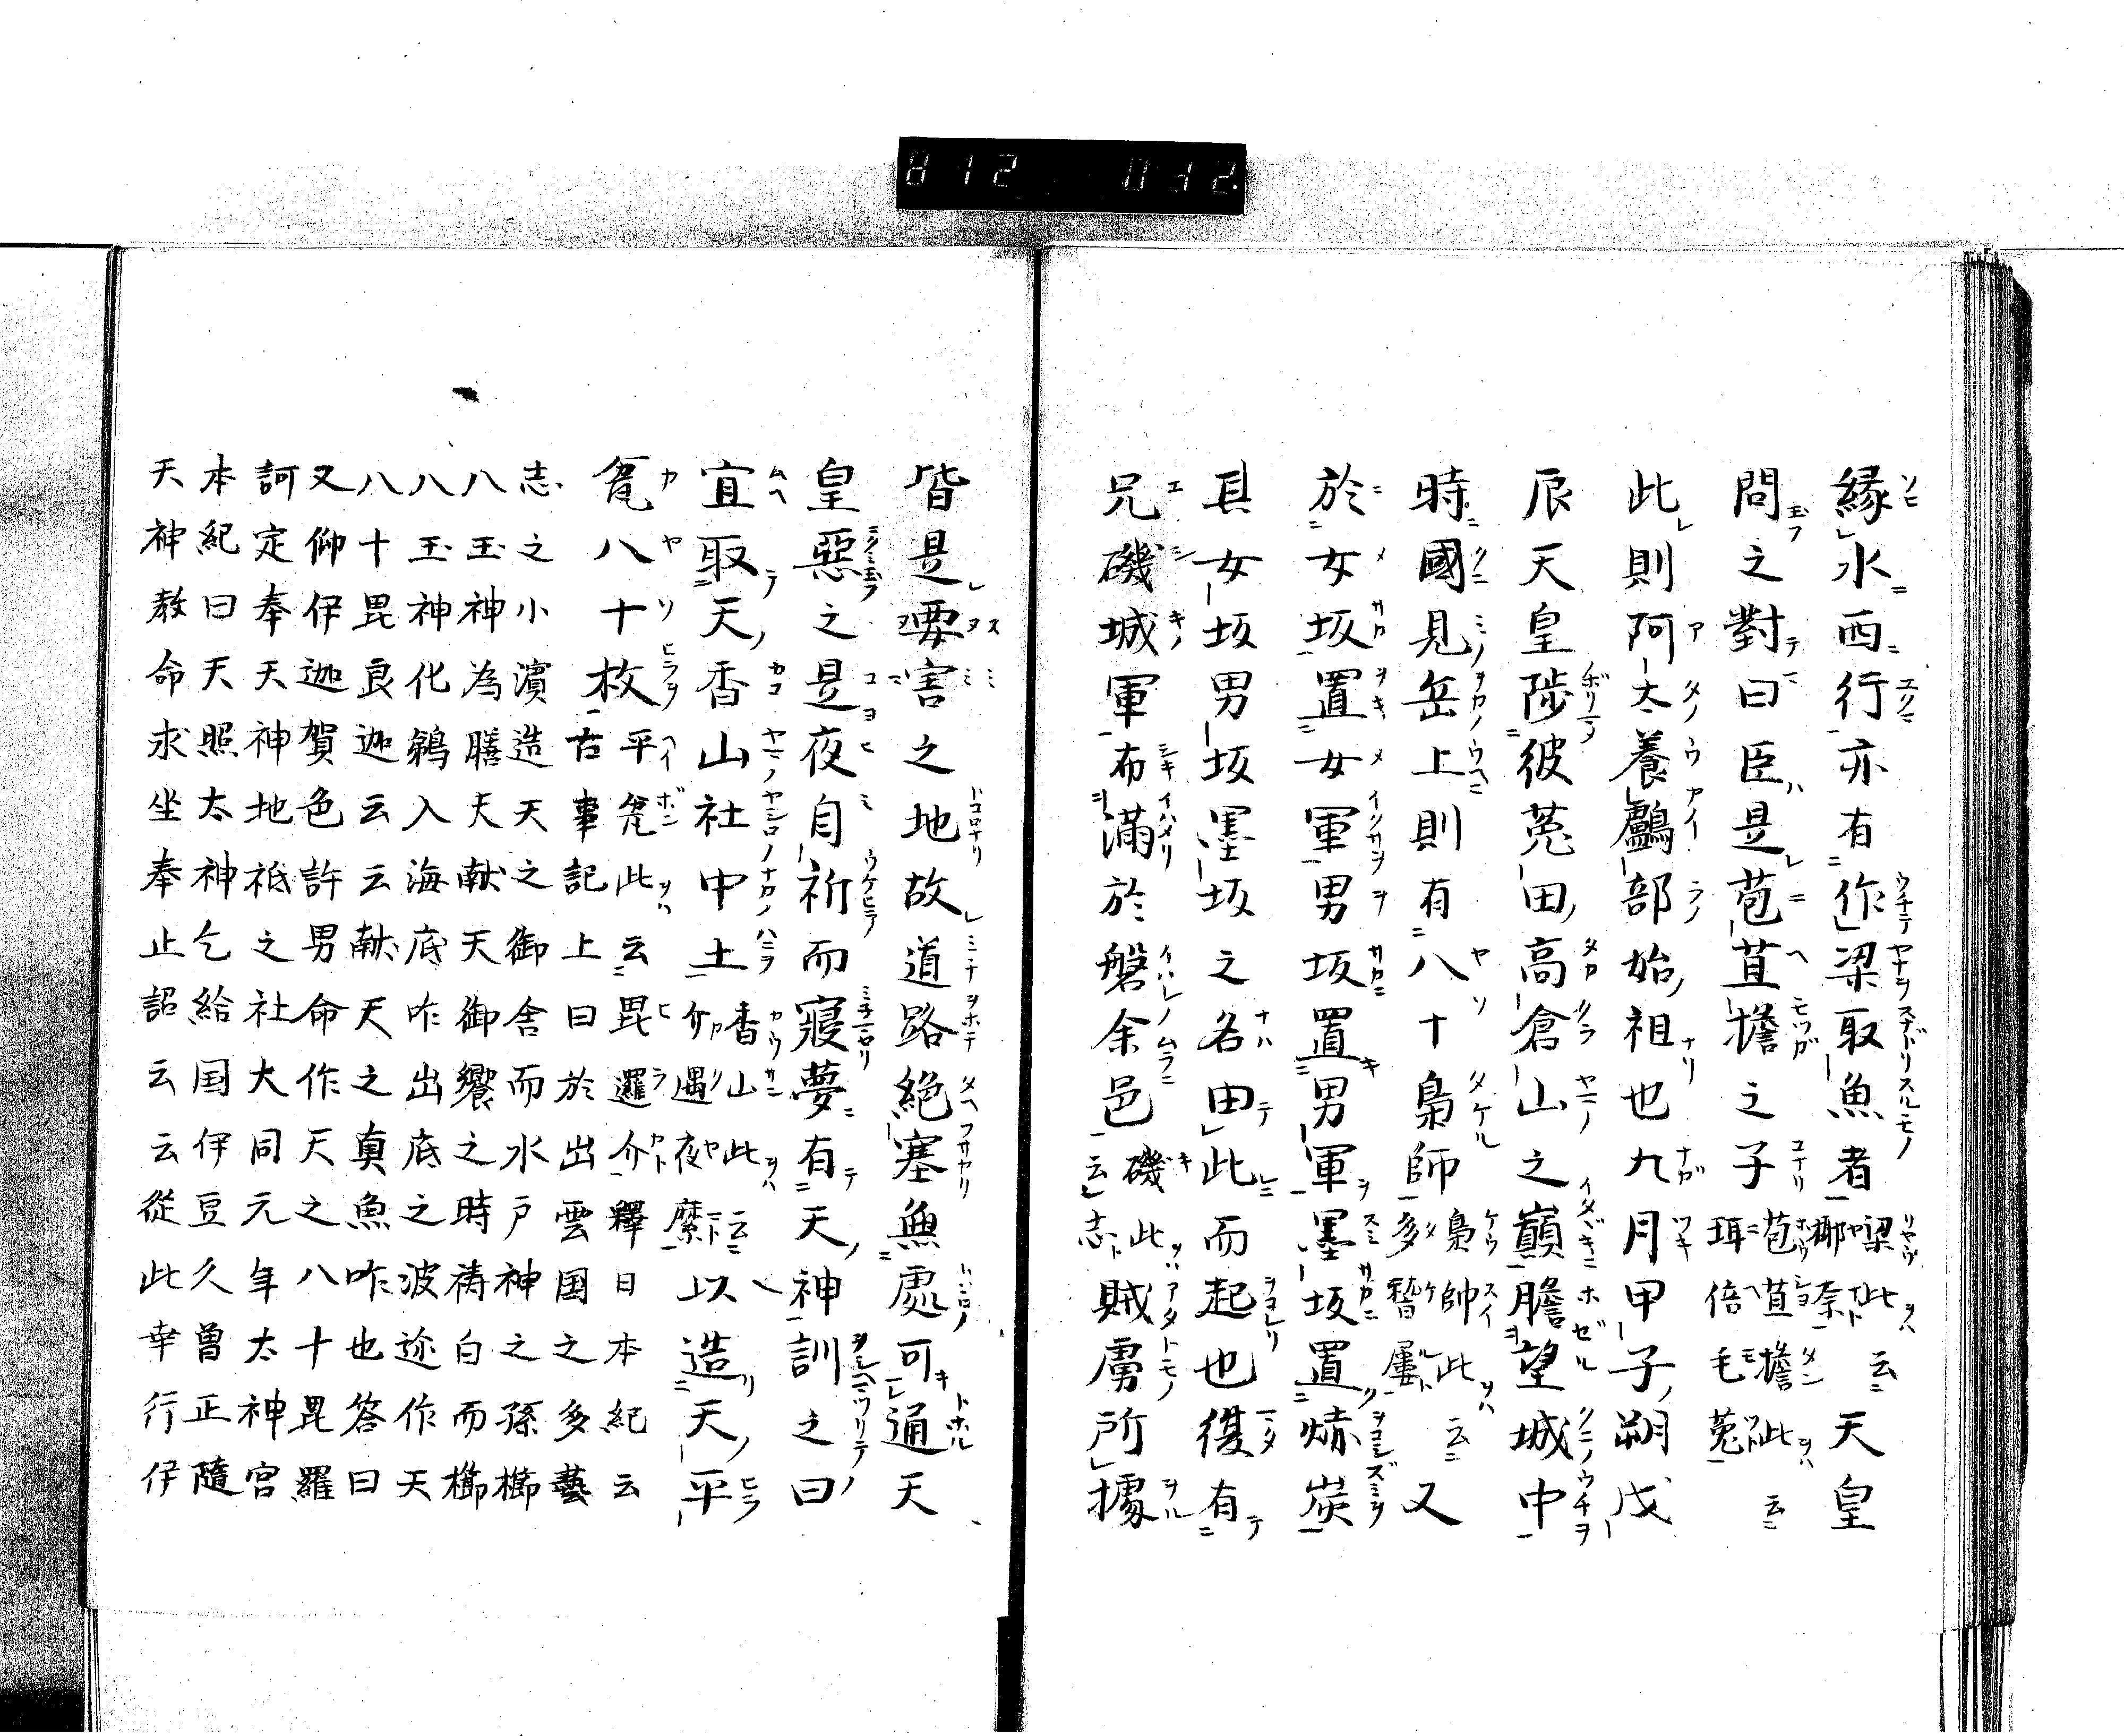 812 012.
縁水西行亦有作梁取魚者梁此云椰奈天皇
問之對曰臣是苞苴擔之子苞苴擔此云珥倍毛菟
此則阿太養鸕部始祖也九月甲子朔戊
辰天皇陟彼菟田高倉山之巓膽望城中
時國見岳上則有八十梟師梟帥此云多稽屢又
於女坂置女軍男坂置男軍墨坂置焃炭
其女坂男坂墨坂之名由此而起也復有
兄磯城軍布滿於磐余邑磯此云志賊虜所據
皆是要害之地故道路絶塞無處可通天
皇惡之是夜自祈而寢夢有天神訓之曰
宜取天香山社中土香山此云介遇夜縻以造天平
瓮八十枚平瓮此云毘邏介釋日本紀云
古事記上曰於出雲国之多藝
志之小濱造天之御舎而水戸神之孫櫛
八玉神為膳夫献天御饗之時祷白而櫛
八玉神化鵜入海底咋出底之波迩作天
八十毘良迦云云献天之真魚咋也答曰
又仰伊迦賀色許男命作天之八十毘羅
訶定奉天神地祇之社大同元年太神宮
本紀曰天照太神乞給国伊豆久曽正隨
天神教命求坐奉止詔云云従此幸行伊